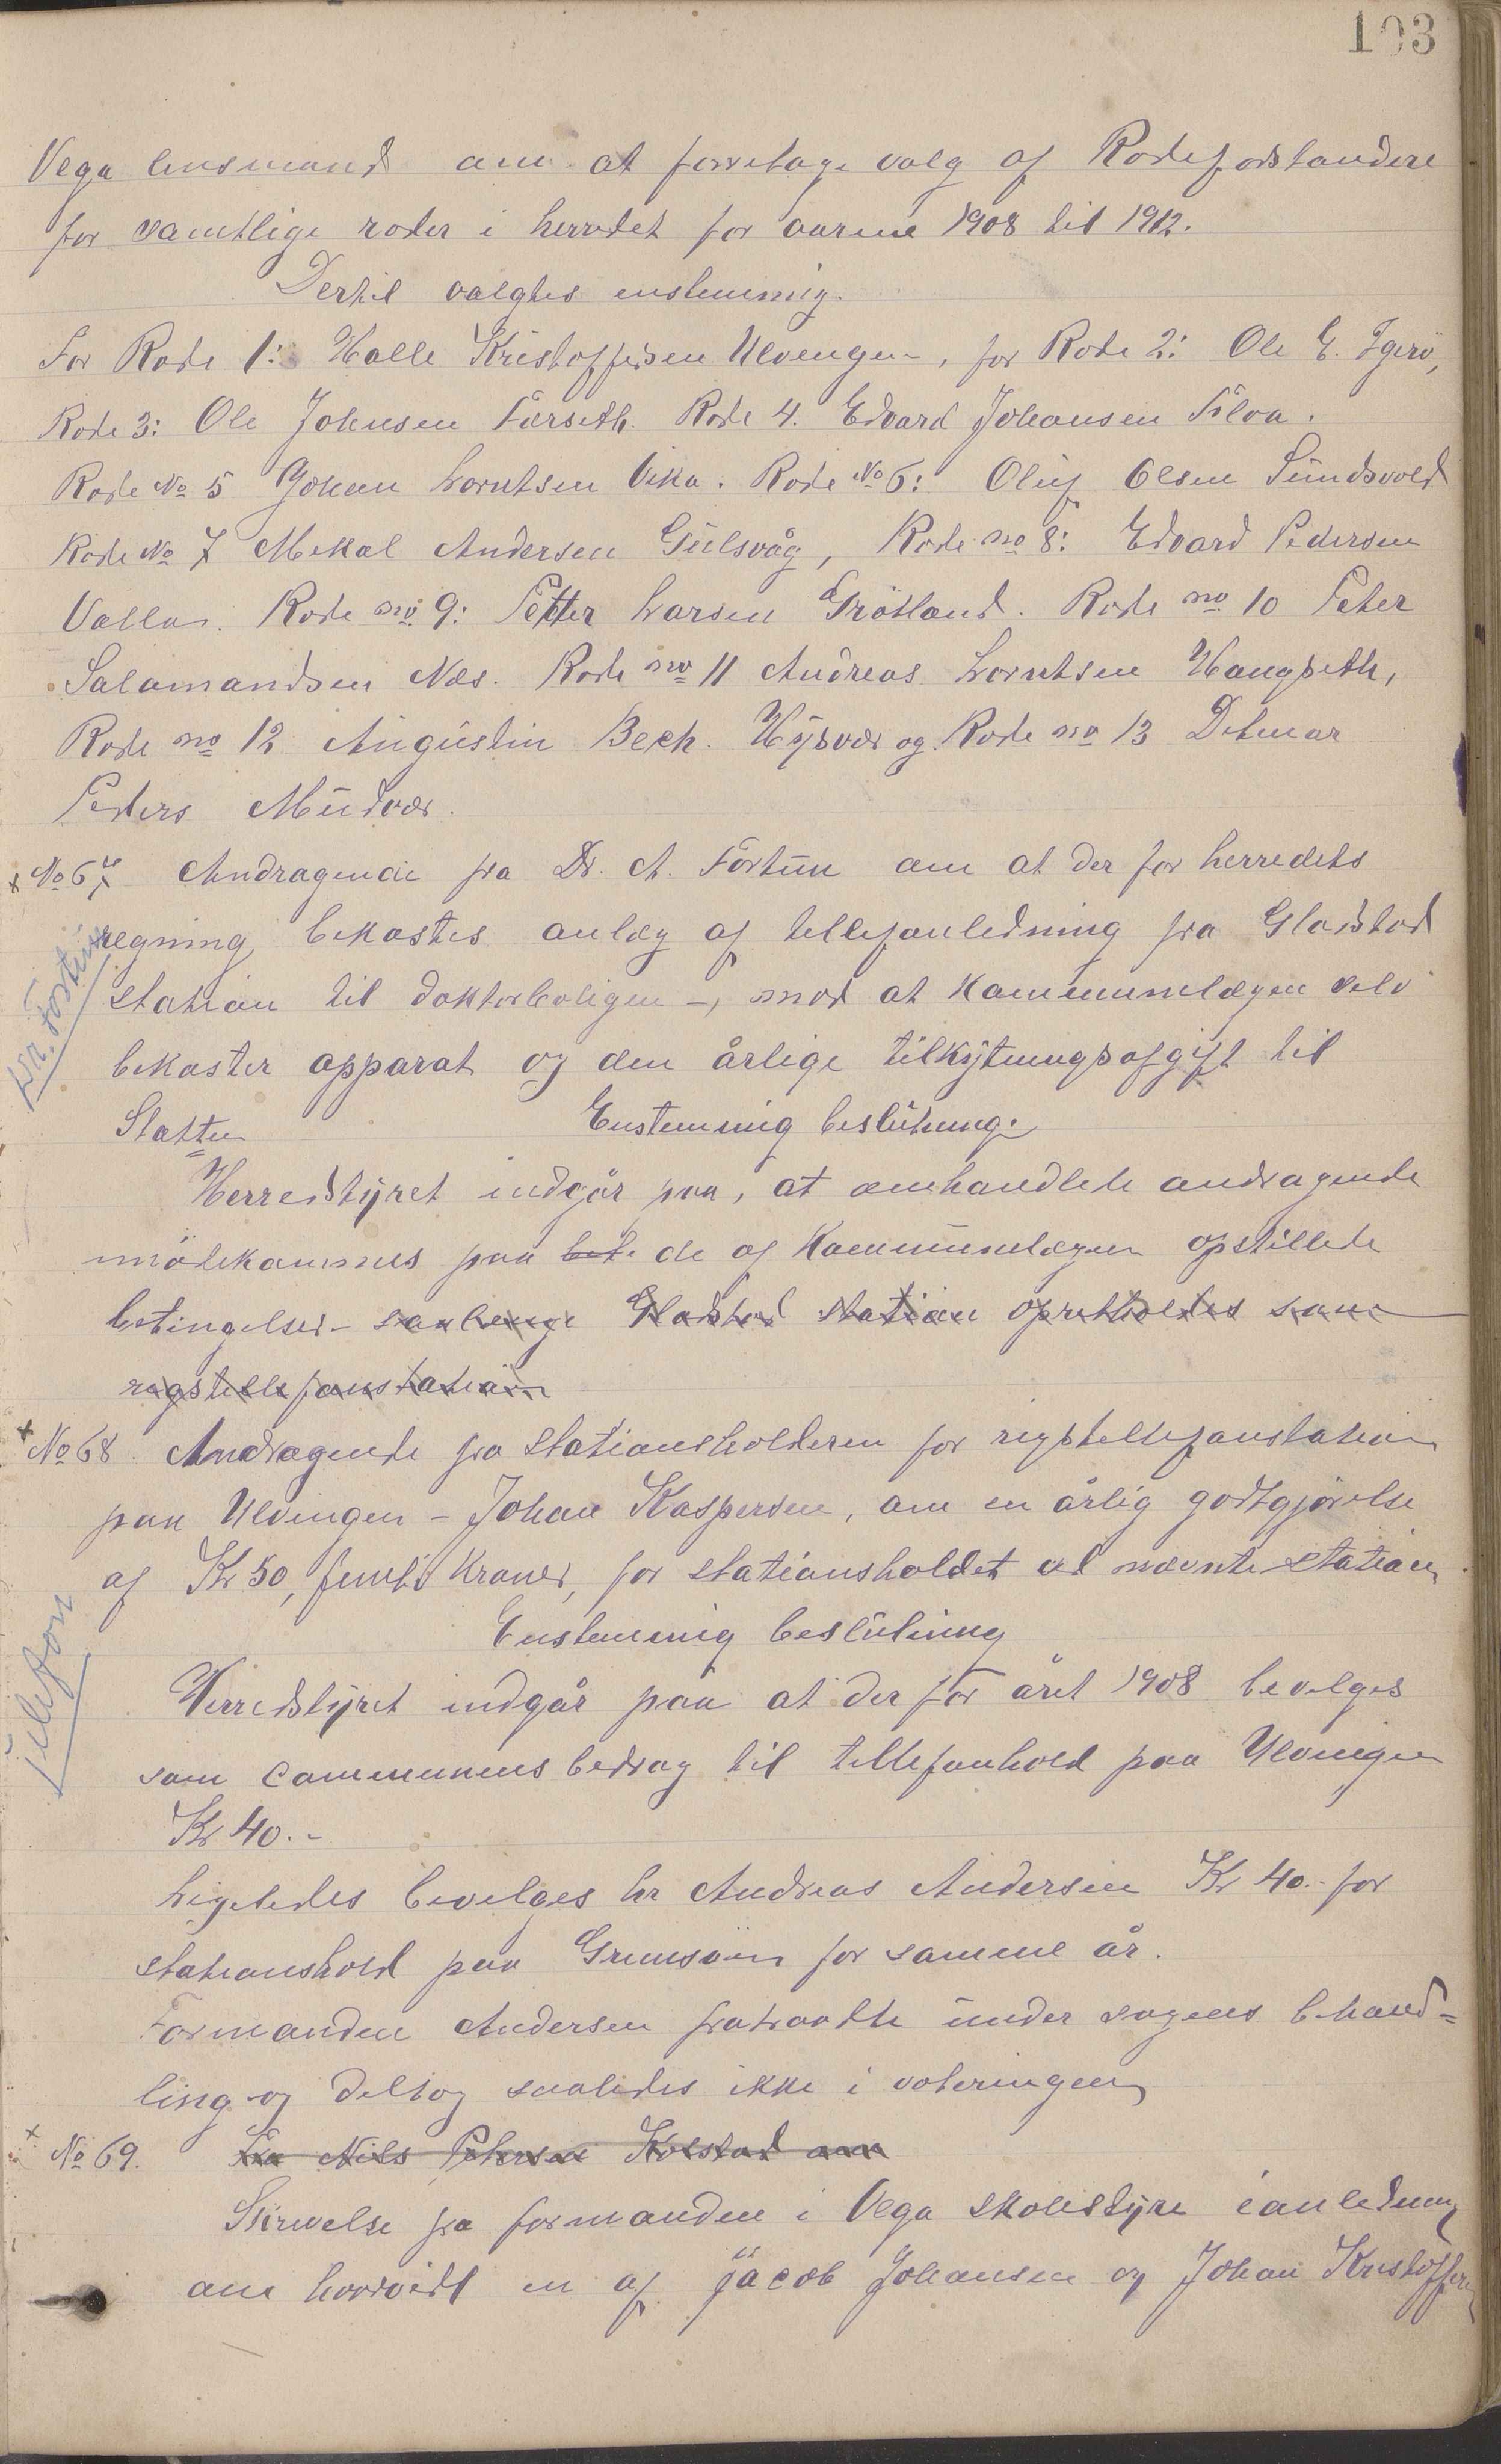 103
Vega lensmand om at foretage valg af Rodeforstandere
for samtlige roder i herredet for aarene 1908 til 1912.
Dertil valgtes enstemmig.
For Rode 1: Halle Kristoffersen Ulvingen, for Rode 2: Ole E. Igerö,
Rode 3: Ole Johnsen Færseth. Rode 4. Edvard Johansen Floa.
Rode No 5 Johan Lorntsen Vika. Rode No 6: Oluf Olsen Sundsvold
Rode No 7 Mekal Andersen Gulsvåg, Rode no 8: Edvard Pedersen
Valla. Rode no 9: Petter Larsen Grötland. Rode no 10 Peter
Salamandsen Nes. Rode no 11 Andreas Lorntsen Haugseth,
Rode no 12 Augustin Bech. Hysvær og Rode no 13 Detmar
Peders Mudvær.
No 67 Andragende fra Dr. A. Fortun om at der for herredets
regning bekostes anlæg af tellefonledning fra Gladstad
Dr. Fortun
station til doktorboligen -, mod at Kommunelægen selv
bekoster apparat og den årlige tilkytningsafgift til
Statten Enstemmig beslutning:
Herredstyret indgår paa, at omhandlede andragende
imödekommes paa bet. de af Kommunelægen opstillede
betingelser - saalenge Gladstad station opretholdes som
rigstellefonstation
No 68. Andragende fra Stationsholderen for rigstellefonstation
paa Ulvingen - Johan Kaspersen, om en årlig godtgjörelse
af Kr 50, femti Kroner, for stationsholdet ved nævnte station
Telefon
Enstemmig beslutning
Herredstyret indgår paa at der for året 1908 bevelges
som communens bedrag til tellefonhold paa Ulvingen
Kr 40.-
Ligeledes bevelges hr Andreas Andersen Kr 40.- for
stationshold paa Grimsöen for samme år.
Formanden Andersen fratraadte under sagens behand=
ling og deltog saaledes ikke i voteringen
No 69. Fra Nils Petersen Kolstad om
Skrivelse fra formanden i Vega skolestyre i anledning
om hvorvidt en af Jacob Johansen og Johan Kristoffersen